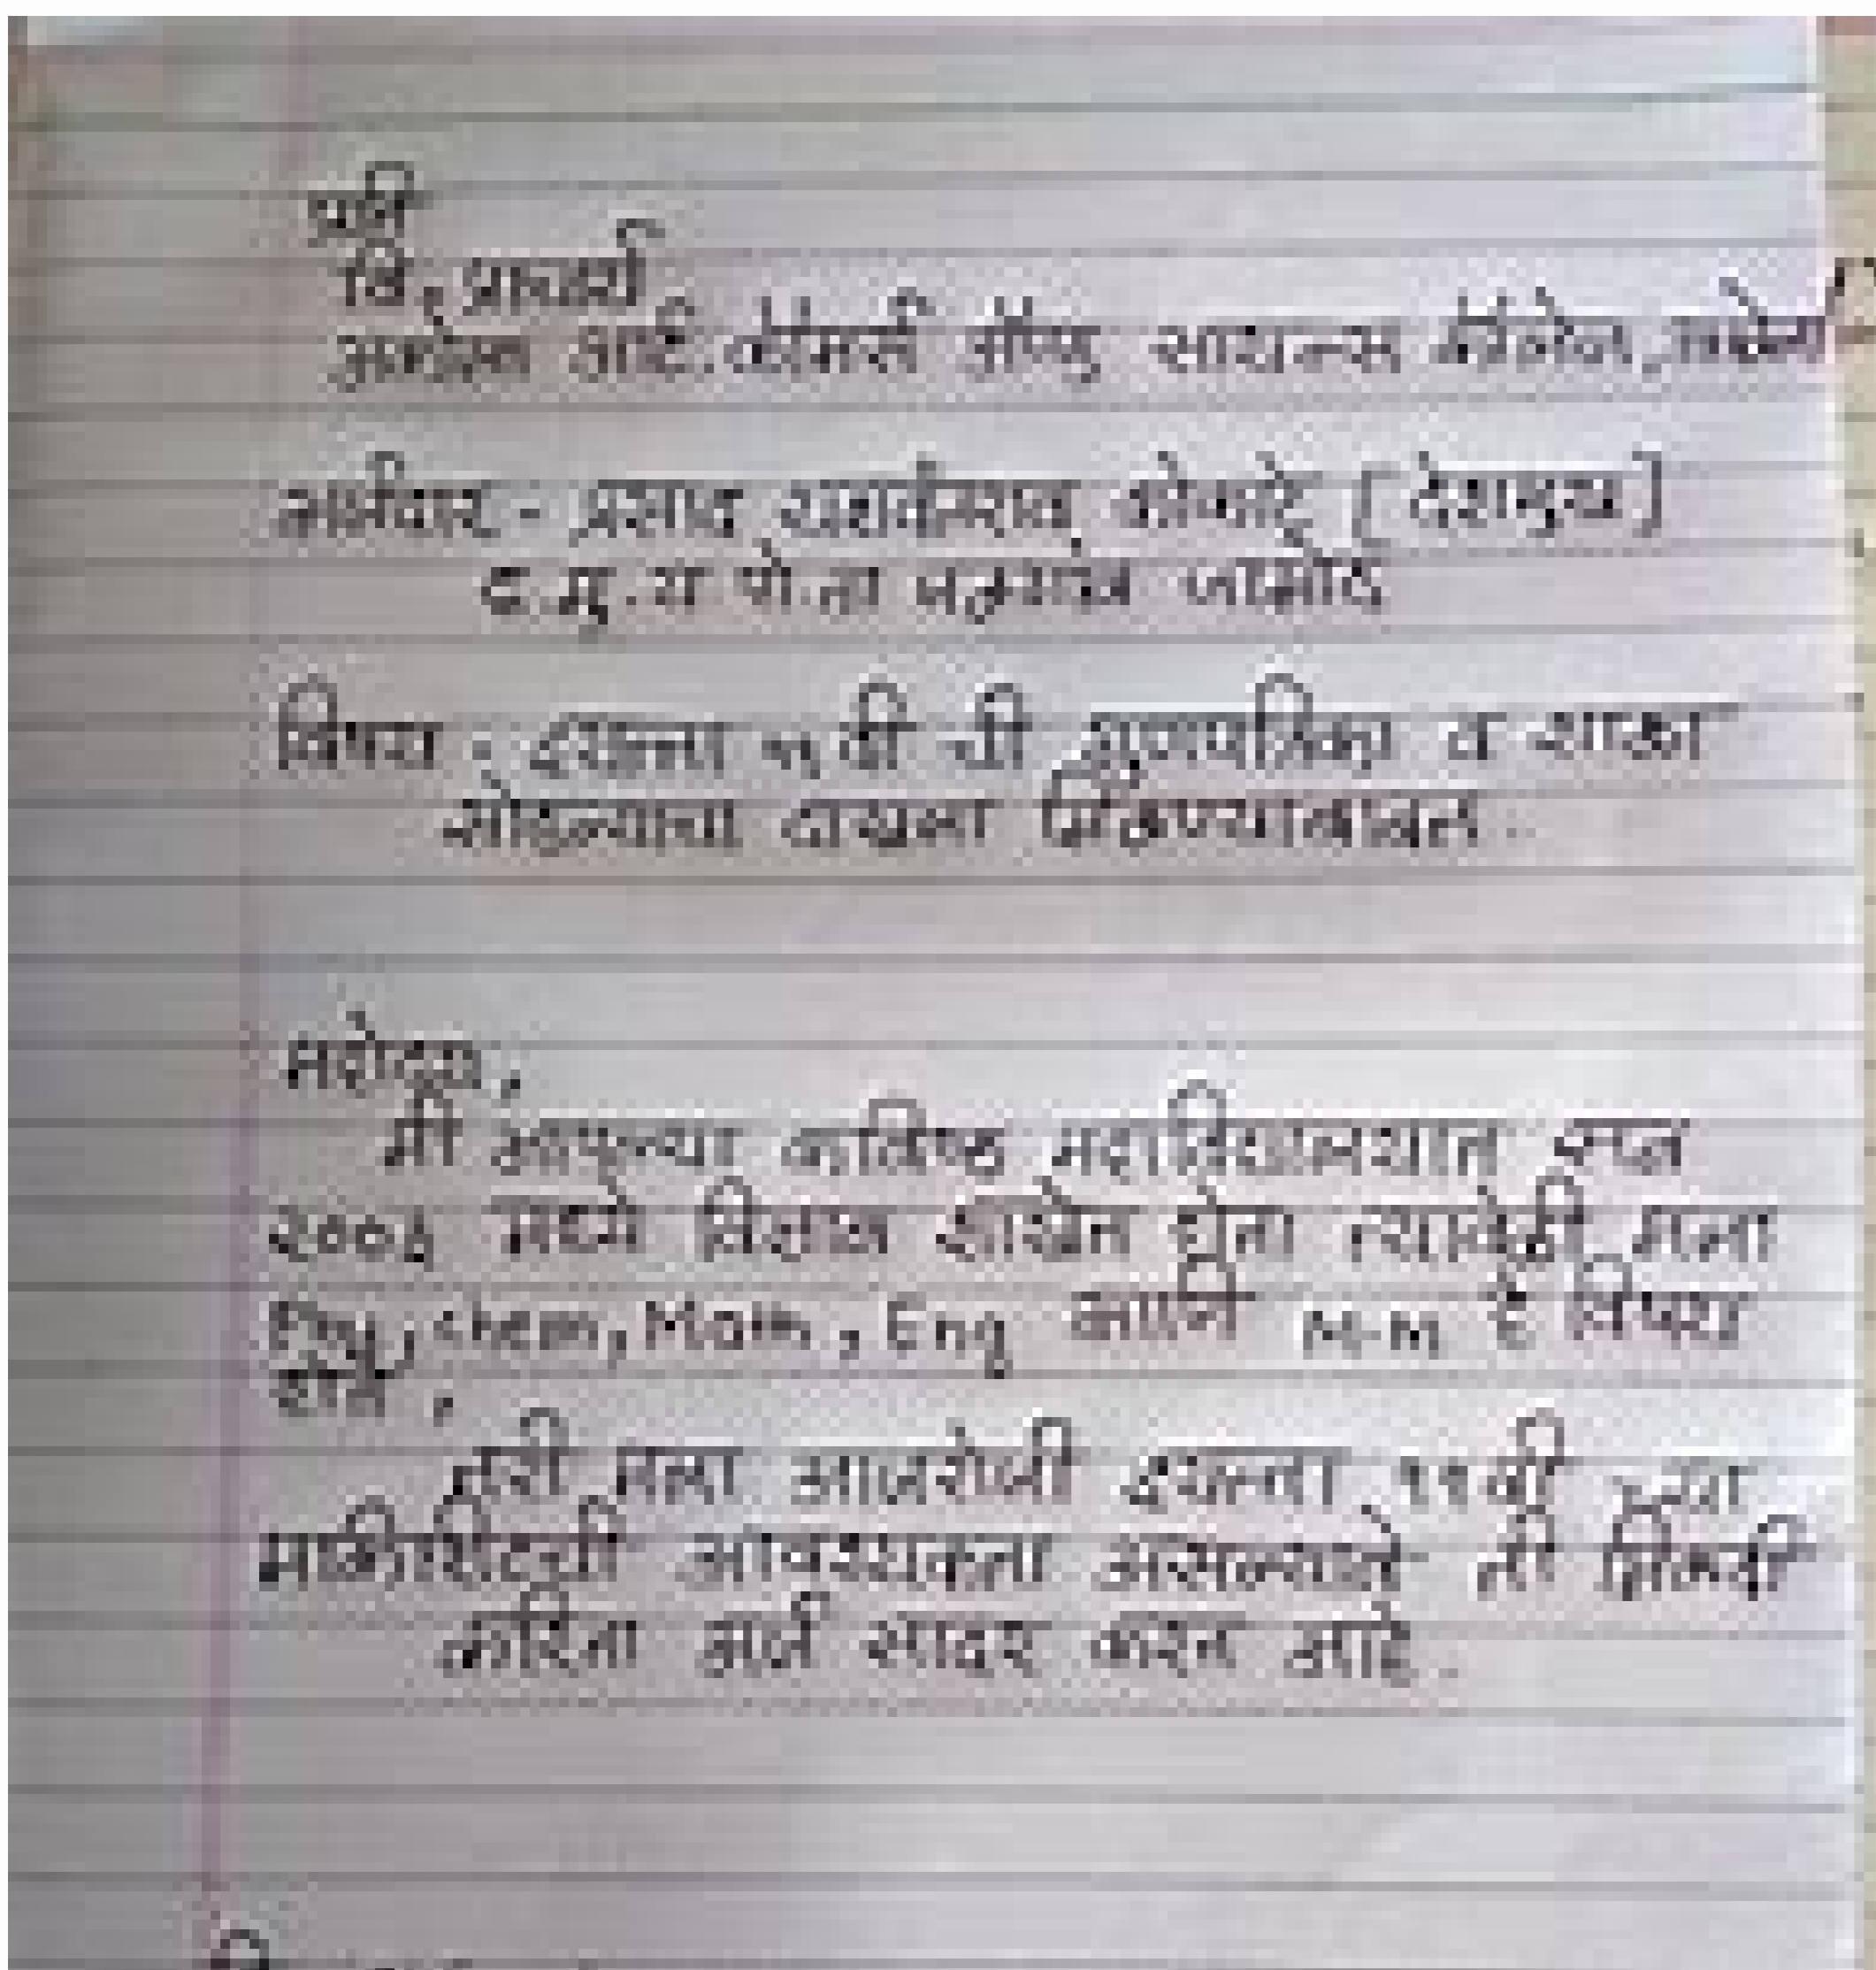 प्रति
मि. प्राचार्य
आर्ट. कॉमर्स अॅण्ड सायन्स कॉलेज,
अर्जदार - प्रसाद यशवंतराव कोकाटे [देशमुख]
द.मु.रा पो.ता जळगांव जामोद
विषय - इयत्ता ची गुणपत्रिका व शाळा
सोडल्याचा दाखला मिळण्याबाबत.
महोदय,
मी आपल्या कनिष्ठ महाविद्यालयात सन
मध्ये विज्ञान शाखेत होतो त्यावेळी मला
Phy, chem, Math, Eng आणि M.M हे विषय
होते,
तरी मला आजरोजी इयत्ता ११वी च्या
मार्कशिटची आवश्यकता असल्याने ती
करिता अर्ज सादर करत आहे.